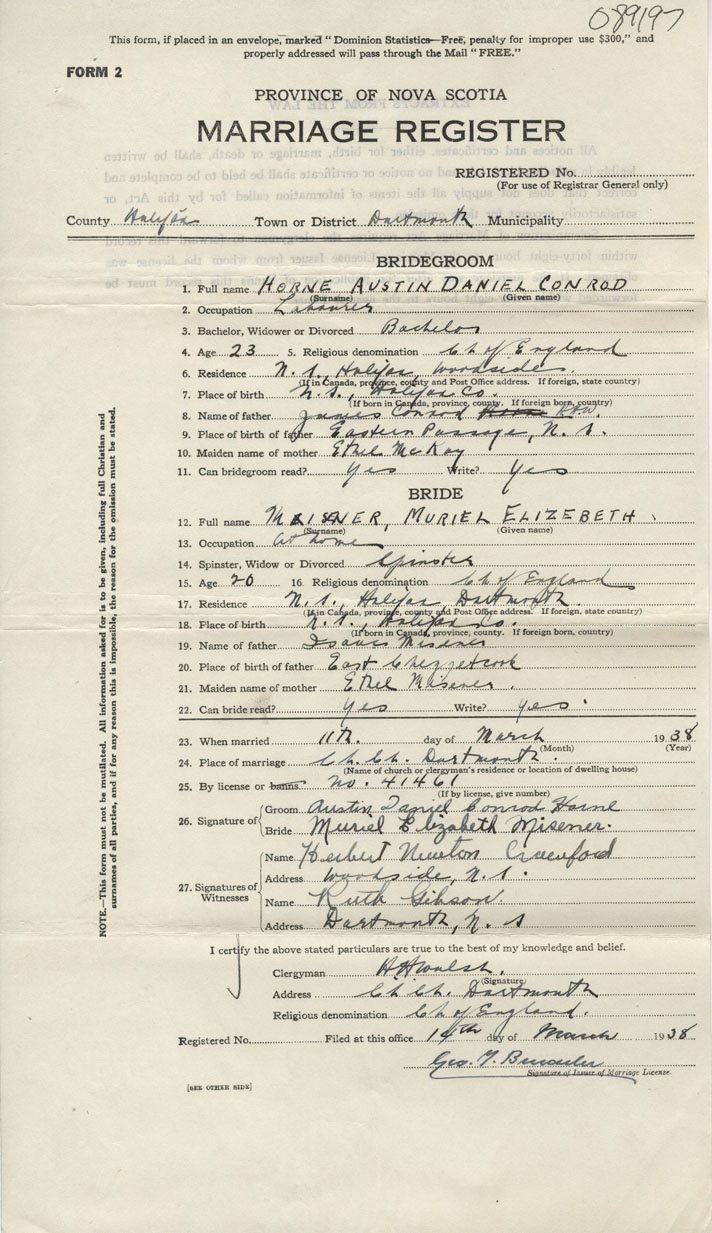 089197
This form, if placed in an envelope, marked "Dominion Statistics—Free, penalty for improper use $300," and
properly addressed will pass through the Mail "FREE."
FORM 2
PROVINCE OF NOVA SCOTIA
MARRIAGE REGISTER
REGISTERED No.
(For use of Registrar General only)
County Halifax Town or District Dartmouth Municipality
BRIDEGROOM
1. Full name HORNE AUSTIN DANIEL CONROD
(Surname) (Given name)
2. Occupation Labourer
3. Bachelor, Widower or Divorced Bachelor
4. Age 23 5. Religious denomination Ch of England
6. Residence N.S., Halifax, Woodside.
(If in Canada, province, county and Post Office address. If foreign, state country)
7. Place of birth N.S., Halifax Co.
(If born in Canada, province, county. If foreign born, country)
8. Name of father James Conrod Horne
9. Place of birth of father Eastern Passage, N.S.
10. Maiden name of mother Ethel McKay
11. Can bridegroom read? Yes Write? Yes
BRIDE
12. Full name MISENER, MURIEL ELIZEBETH
(Surname) (Given name)
13. Occupation at home
14. Spinster, Widow or Divorced Spinster
15. Age 20 16. Religious denomination Ch of England
17. Residence N.S., Halifax, Dartmouth.
(If in Canada, province, county and Post Office address. If foreign, state country)
18. Place of birth N.S., Halifax Co.
(If born in Canada, province, county. If foreign born, country)
19. Name of father Isaac Misener
20. Place of birth of father East Chezzetcook
21. Maiden name of mother Ethel Misener.
22. Can bride read? Yes Write? Yes.
23. When married 11th. day of March 1938
(Month) (Year)
24. Place of marriage Ch. Ch. Dartmouth.
(Name of church or clergyman's residence or location of dwelling house)
25. By license or banns No. 41461
(If by license, give number)
26. Signature of Groom Austin Daniel Conrod Horne
Bride Muriel Elizabeth Misener.
27. Signatures of Witnesses
Name Herbert Newton
Address Woodside, N.S.
Name Ruth Gibson.
Address Dartmouth, N.S
I certify the above stated particulars are true to the best of my knowledge and belief.
Clergyman
(Signature)
Address Ch. Ch. Dartmouth
Religious denomination Ch of England.
Registered No. Filed at this office 14th day of March 1938
Geo. T.
Signature of Issuer of Marriage License
[SEE OTHER SIDE]
NOTE.—This form must not be mutilated. All information asked for is to be given, including full Christian and
surnames of all parties, and if for any reason this is impossible, the reason for the omission must be stated.